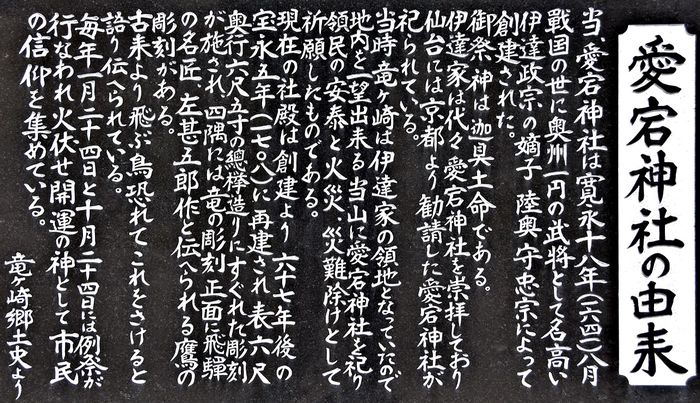 愛宕神社の由来
当愛宕神社は寛永十八年(一六四一)八月
戦国の世に奥州一円の武将として名高い
伊達政宗の嫡子 陸奥守忠宗によって
創建された。
御祭神は迦具土命である。
伊達家は代々愛宕神社を崇拝しており
仙台には京都より勧請した愛宕神社が
祀られている。
当時竜ヶ崎は伊達家の領地となっていたので
地内を一望出来る当山に愛宕神社を祀り
領民の安泰と火災、災難除けとして
祈願したものである。
現在の社殿は創建より六十七年後の
宝永五年(一七〇八)に再建され表六尺
奥行六尺五寸の總欅造りにすぐれた彫刻
が施され四隅には竜の彫刻正面に飛驒
の名匠 左甚五郎作と伝へられる鷹の
彫刻がある。
古来より飛ぶ鳥恐れてこれをさけると
語り伝へられている。
毎年一月二十四日と十月二十四日には例祭が
行なわれ火伏せ開運の神として市民
の信仰を集めている。
竜ヶ崎郷土史より